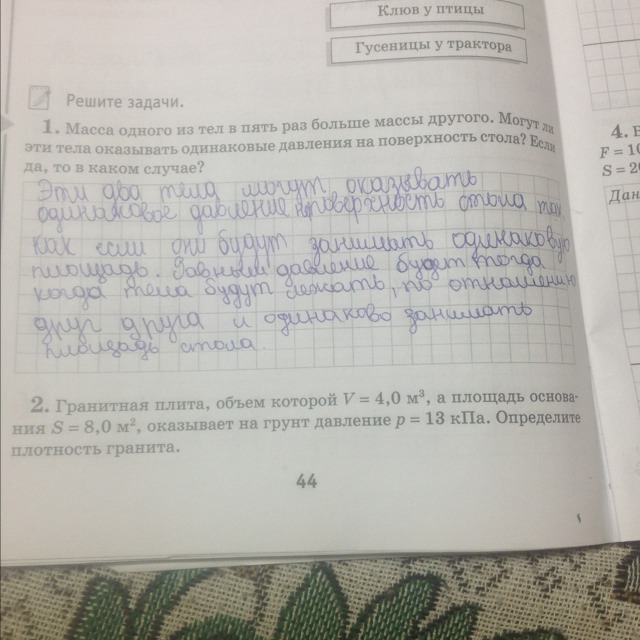 Клюв у птицы
Гусеницы у трактора
Решите задачи.
1. Масса одного из тел в пять раз больше массы другого. Могут ли
эти тела оказывать одинаковые давления на поверхность стола? Если
да, то в каком случае?
Эти два тела могут оказывать
одинаковое давление поверхность стола так
как если они будут занимать одинаковую
площадь. Равным давление будет тогда
когда тела будут лежать, по отношению
друг друга и одинаково занимать
площадь стола
2. Гранитная плита, объем которой V = 4,0 м³, а площадь основа-
ния S = 8,0 м², оказывает на грунт давление p = 13 кПа. Определите
плотность гранита.
44
4. В
F = 10
S = 20
Дан